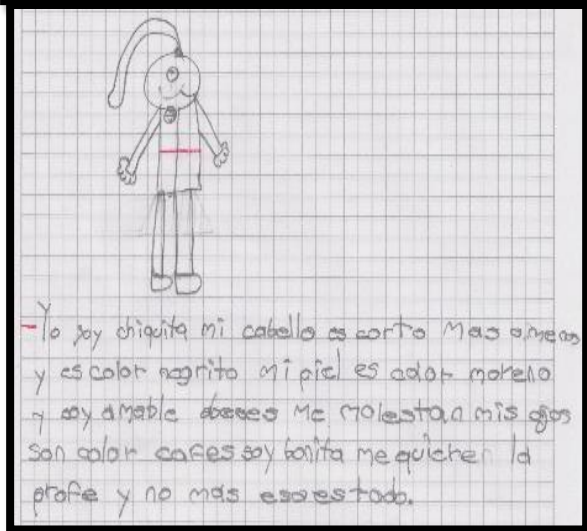 -Yo soy chiquita mi cabello es corto mas o menos
y es color negrito mi piel es color moreno
y soy amable aveces me molestan mis ojos
son color cafes soy bonita me quieren la
profe y no mas eso es todo.